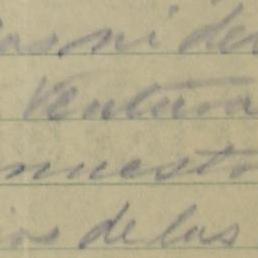 as ni de
Ventura
nuestr
ios de las